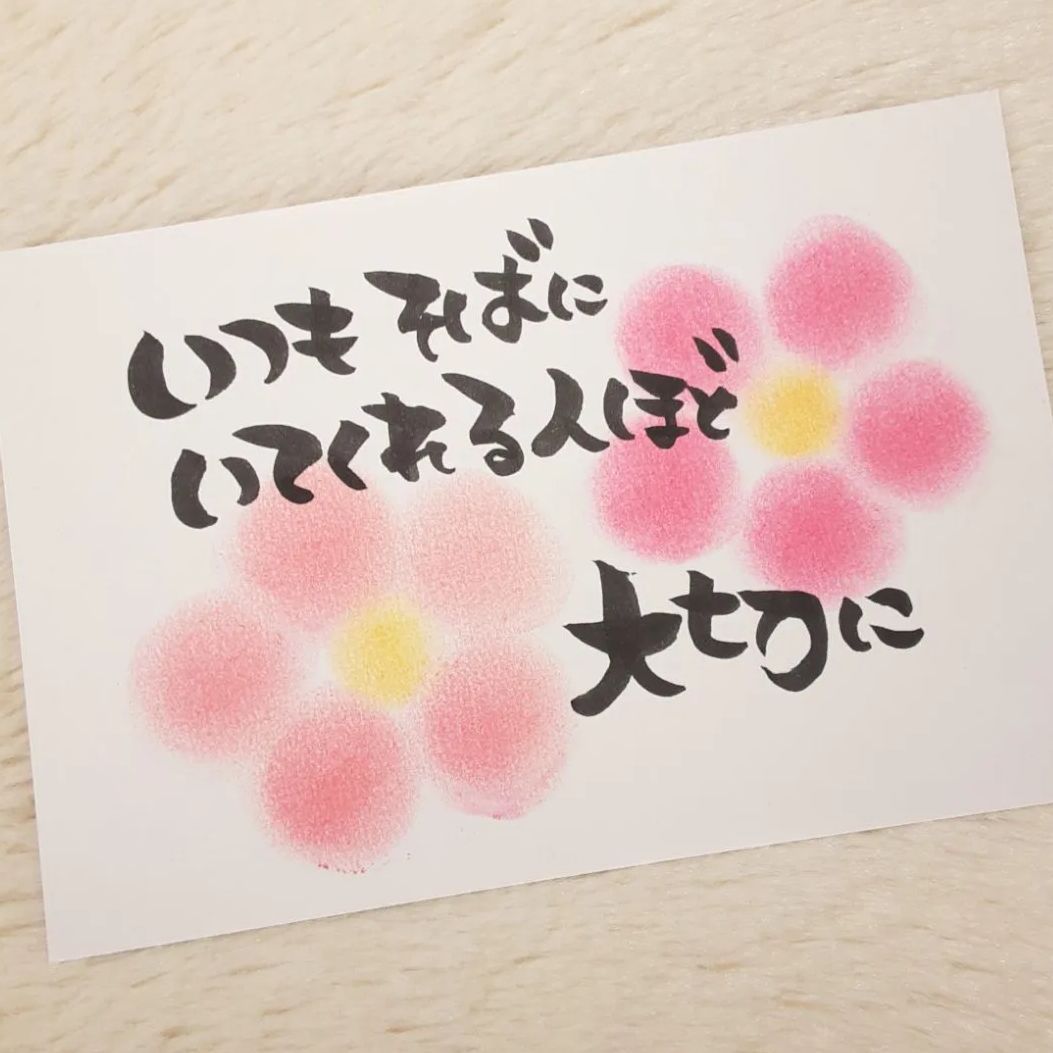 いつも そばに
いてくれる人ほど
大切に